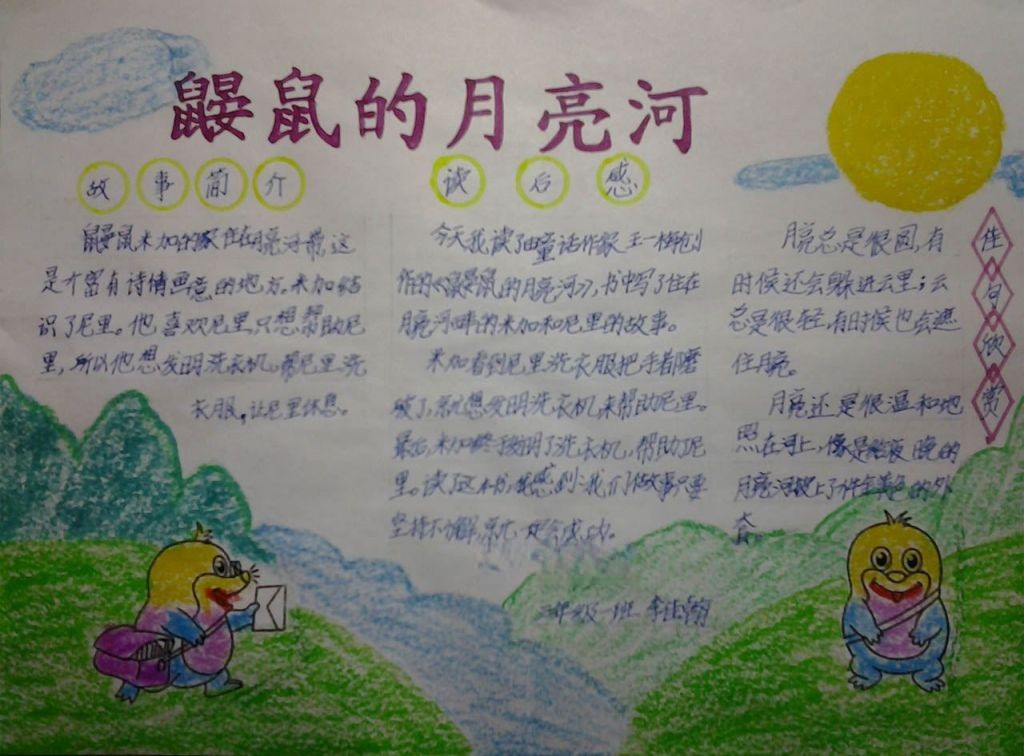 鼹鼠的月亮河
故事简介
鼹鼠米加的家住在月亮河旁,这
是个富有诗情画意的地方,米加结
识了尼里。他喜欢尼里,只想帮助尼
里,所以他想发明洗衣机。帮尼里洗
衣服,让尼里休息。
读后感
今天我读了由童话作家王一梅创
作的《鼹鼠的月亮河》,书中写了住在
月亮河畔的米加和尼里的故事。
米加看到尼里洗衣服把手都磨
破了,就想发明洗衣机,来帮助尼里。
最后,米加终于发明了洗衣机,帮助了尼
里。读了这本书,我感到:我们做事只要
坚持不懈,就一定会成功。
年级一班 李
佳句欣赏
月亮总是很圆,有
时候还会躲进云里;云
总是很轻,有时候也会遮
住月亮。
月亮还是很温和地
照在河上,像是给夜晚的
月亮河披上了件金黄色的外
衣。